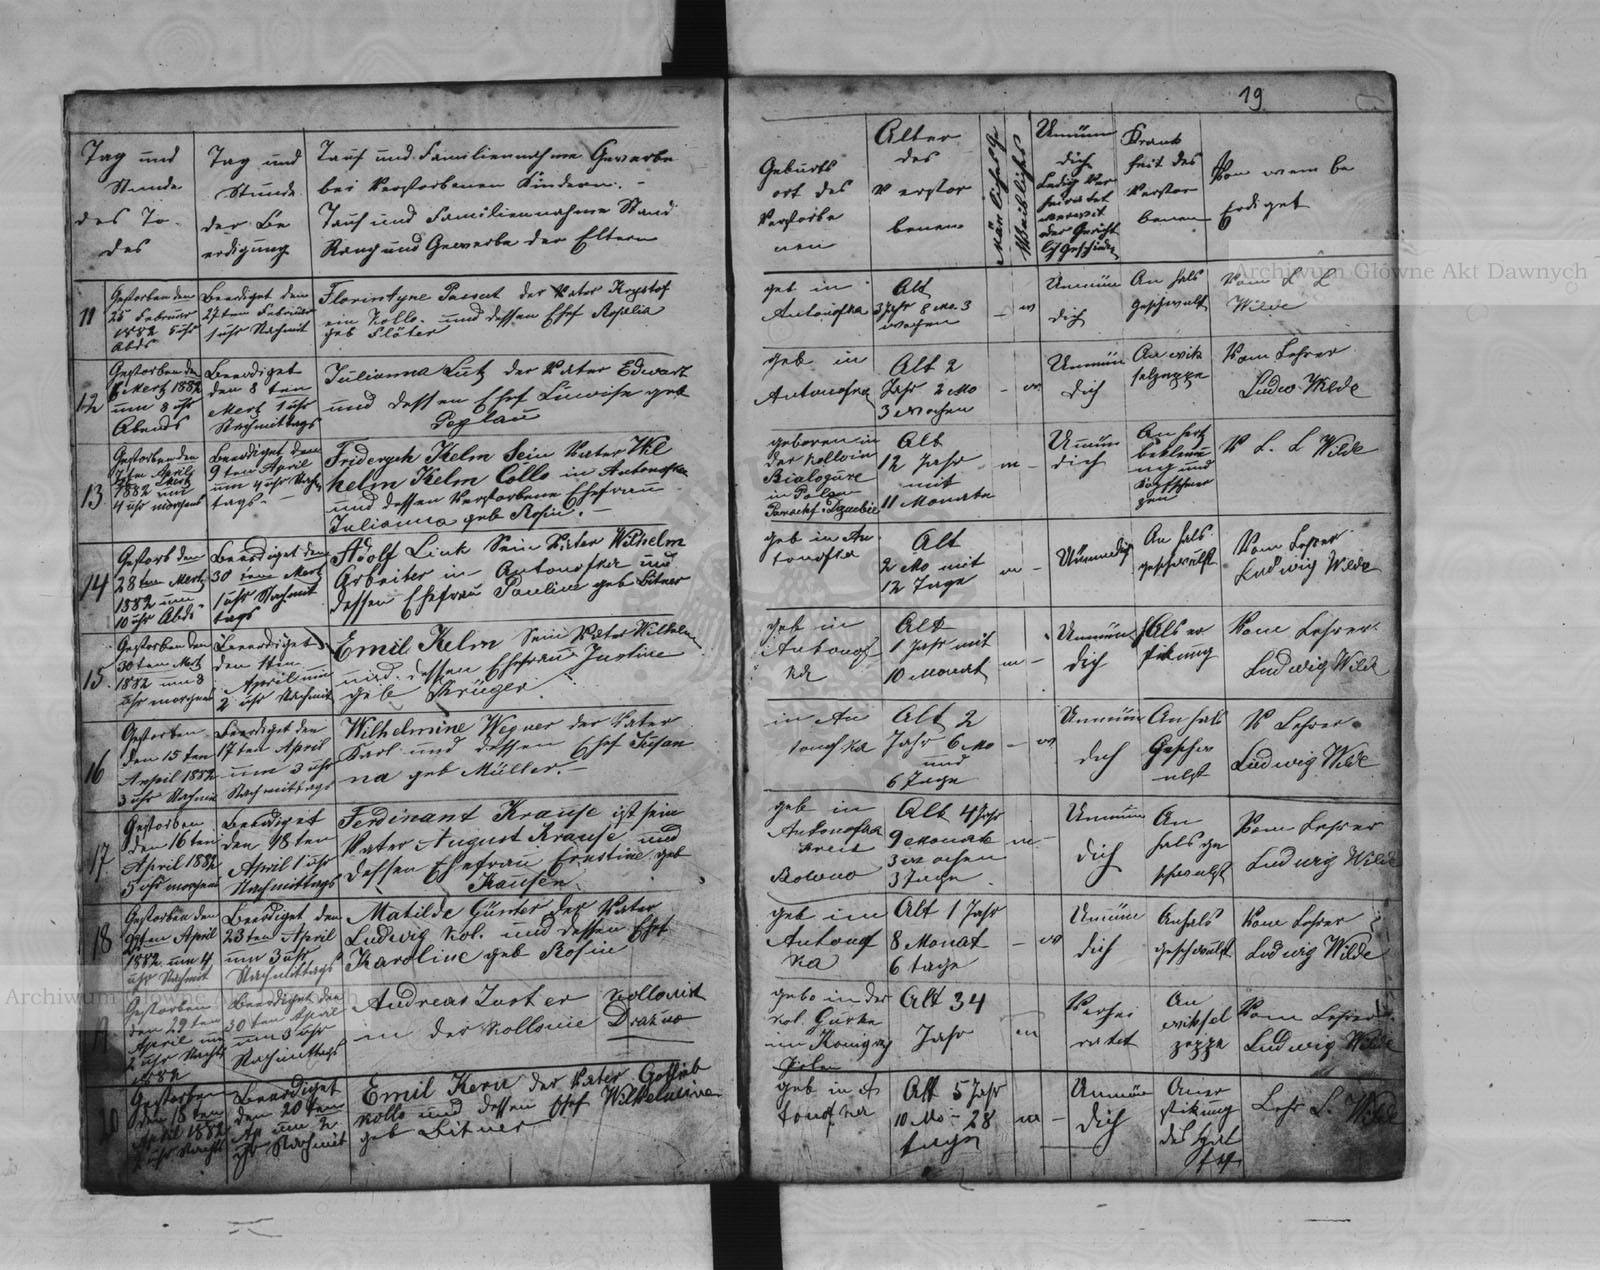 19
Tag und
Stunde
des To-
des
Tag und
Stunde
der Be
erdigung
Tauf und Familiennahme Gewerbe
bei Verstorbenen Kindern. -
Tauf und Familiennahme Stand
Rang und Gewerbe der Eltern
Geburts
ort des
Verstorbe
nen
Alter
des
Verstor
benen
Mänliches G
Weibliches
Unmün
dich
Ledig Ver
heiratet
verwit
oder Gericht
lich Geschieden
Krank
heit des
Verstor
benen
Von wem be
Erdiget
11
Gestorben den
25 Februar
1882 5 uhr
Abds
Beerdiget den
27ten Februar
1 uhr Nachmit
Florintyne Passat der Vater Krystof
ein Kollo. und dessen Ehef Rosalia
geb Flöter
geb in
Antonofka
Alt
3 Jahr 8 Mo. 3
wochen
- w
Unmün
dich
An hals
geschwulst
Vom L L
Wilde
12
Gestorben den
6 Mertz 1882
um 8 uhr
Abends
Beerdiget
den 8 ten
Mertz 1 uhr
Nachmittags
Julianna Lutz der Vater Edwart
und dessen Ehef Luwise geb
Poglau
geb in
Antonofka
Alt 2
Jahr 2 Mo
3 wochen
- w
Unmün
dich
Vom Lehrer
Ludw Wilde
13
Gestorben den
7ten April
1882 um
4 uhr morgens
Beerdiget den
9 ten April
um 4 uhr Nach
tags. -
Fridergch Kelm Sein Vater Wil
helm Kelm Collo in Antonofka
und dessen Verstorbene Ehefrau
Julianna geb Rosin. -
geboren in
der Kollonie
in Polen
Alt
12 Jahr
mit
11 Monate
m -
Unmün
dich
An hertz
beklemu
ng und
Kopfschmer
zen
V L. L Wilde
14
Gestorb den
28 ten Mertz
1882 um
10 uhr Abds.
Beerdiget den
30 ten Mertz
1 uhr Nachmit
tags
Adolf Link Sein Vater Wilhelm
Arbeiter in Antonofka und
dessen Ehefrau Pauline geb Bitner
geb in An
tonofka
Alt
2 Mo mit
12 Tage
m -
Unmündich
An hals
geschwulst
Vom Lehrer
Ludwig Wilde
15
Gestorben den
30 ten Mertz
1882 um 8
uhr morgens
Beerdiget
den 1ten
April um
2 uhr Nachmit
Emil Kelm Sein Vater Wilhelm
und dessen Ehefrau Justine
geb Krüger.
geb in
Antonof
ka
Alt
1 Jahr mit
10 Monat
m -
Unmün
dich
Hals er
stikung
Vom Lehrer
Ludwig Wilde
16
Gestorben
den 15 ten
April 1882
3 uhr Nachmi
Beerdiget den
17 ten April
um 3 uhr
Nachmittags
Wilhelmine Wegner der Vater
Karl und dessen Ehef Susan
na geb Müller. -
in An
tonofka
Alt 2
Jahr 6 Mo
und
6 Tage
- w
Unmün
dich
An hals
Geschw
ulst
V Lehrer
Ludwig Wilde
17
Gestorben
den 16 ten
April 1882
5 uhr morgens
Beerdiget
den 18 ten
April 1 uhr
Nachmittags
Ferdinant Krause ist sein
Vater August Krause und
dessen Ehefrau Ernstine geb
Kausen
geb in
Antonofka
Kreis
Rowno
Alt 4 Jahr
9 Monate
3 wochen
3 Tage
m -
Unmün
dich
An
hals ge
schwulst
Vom Lehrer
Ludwig Wilde
18
Gestorben den
April
1882 um 4
uhr Nachmit
Beerdiget den
23 ten April
um 3 uhr
Nachmittags
Matilde Günter der Vater
Ludwig Kol. und dessen Ehef
Karoline geb Rosin
geb in
Antonof
ka
Alt 1 Jahr
8 Monat
6 tage
- w
Unmün
dich
An hals
geschwulst
Vom Lehrer
Ludwig Wilde
19
Gestorben
den 29 ten
April um
2 uhr Nachts
1882
Beerdiget den
30 ten April
um 3 uhr
Nachmittags
Andreas Juster Kollonist
in der Kollonie
gebo in der
Kol. Gurke
im Königr
Polen
Alt 34
Jahr
m
Verhei
ratet
An
Vom Lehrer
Ludwig Wilde
20
Gestorben
den 18 ten
April 1882
uhr Nachts
Beerdiget
den 20 ten
Ap um 2
uhr Nachmit
Emil Kern der Vater Gottlieb
Kollo und dessen Ehef Wilhelmine
geb Bitner
geb in A
tonofka
Alt 5 Jahr
10 Mo - 28
tage
m -
Unmün
dich
An er
stikung
des
Lehr L. Wilde
Archiwum Główne Akt Dawnych
Archiwum Główne Akt Dawnych